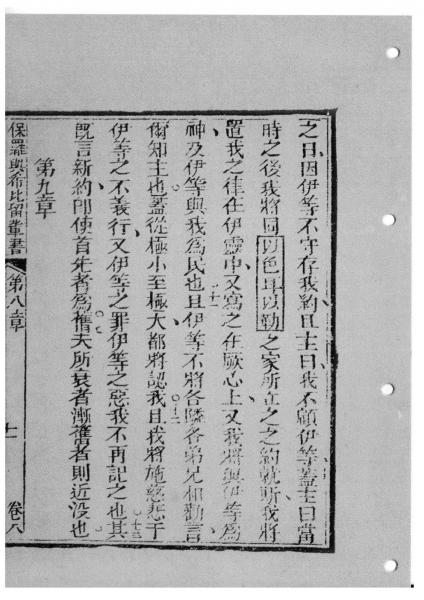 之日因伊等不守存我約且主曰我不顧伊等蓋主曰當
時之後我將同以色耳以勒之家所立之之約就斯我將
置我之律在伊靈中又寫之在厥心上又我將與伊等為
神及伊等與我為民也且伊等不將各鄰各弟兄相勸言
爾知主也蓋從極小至極大都將認我且我將施慈悲于
伊等之不義行又伊等之罪伊等之惡我不再記之也其
旣言新約即使首先者為舊夫所衰者漸舊者則近没也
第九章
保羅與希比留輩書
第八章
十一
卷八